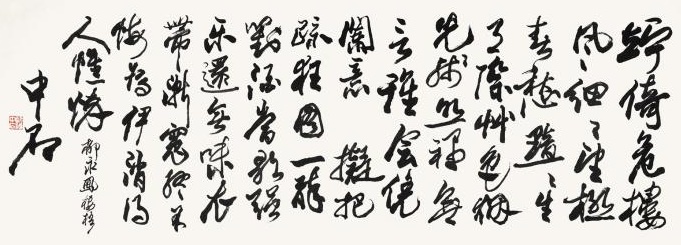 竚倚危樓
風細々望極
春愁黯々生
天際艸色煙
光殘照裡無
言誰會凭
闌意 擬把
疏狂圖一醉
對酒當歌強
樂還無味衣
帶漸寬終不
悔為伊消得
人憔悴 柳永鳳棲梧
中石